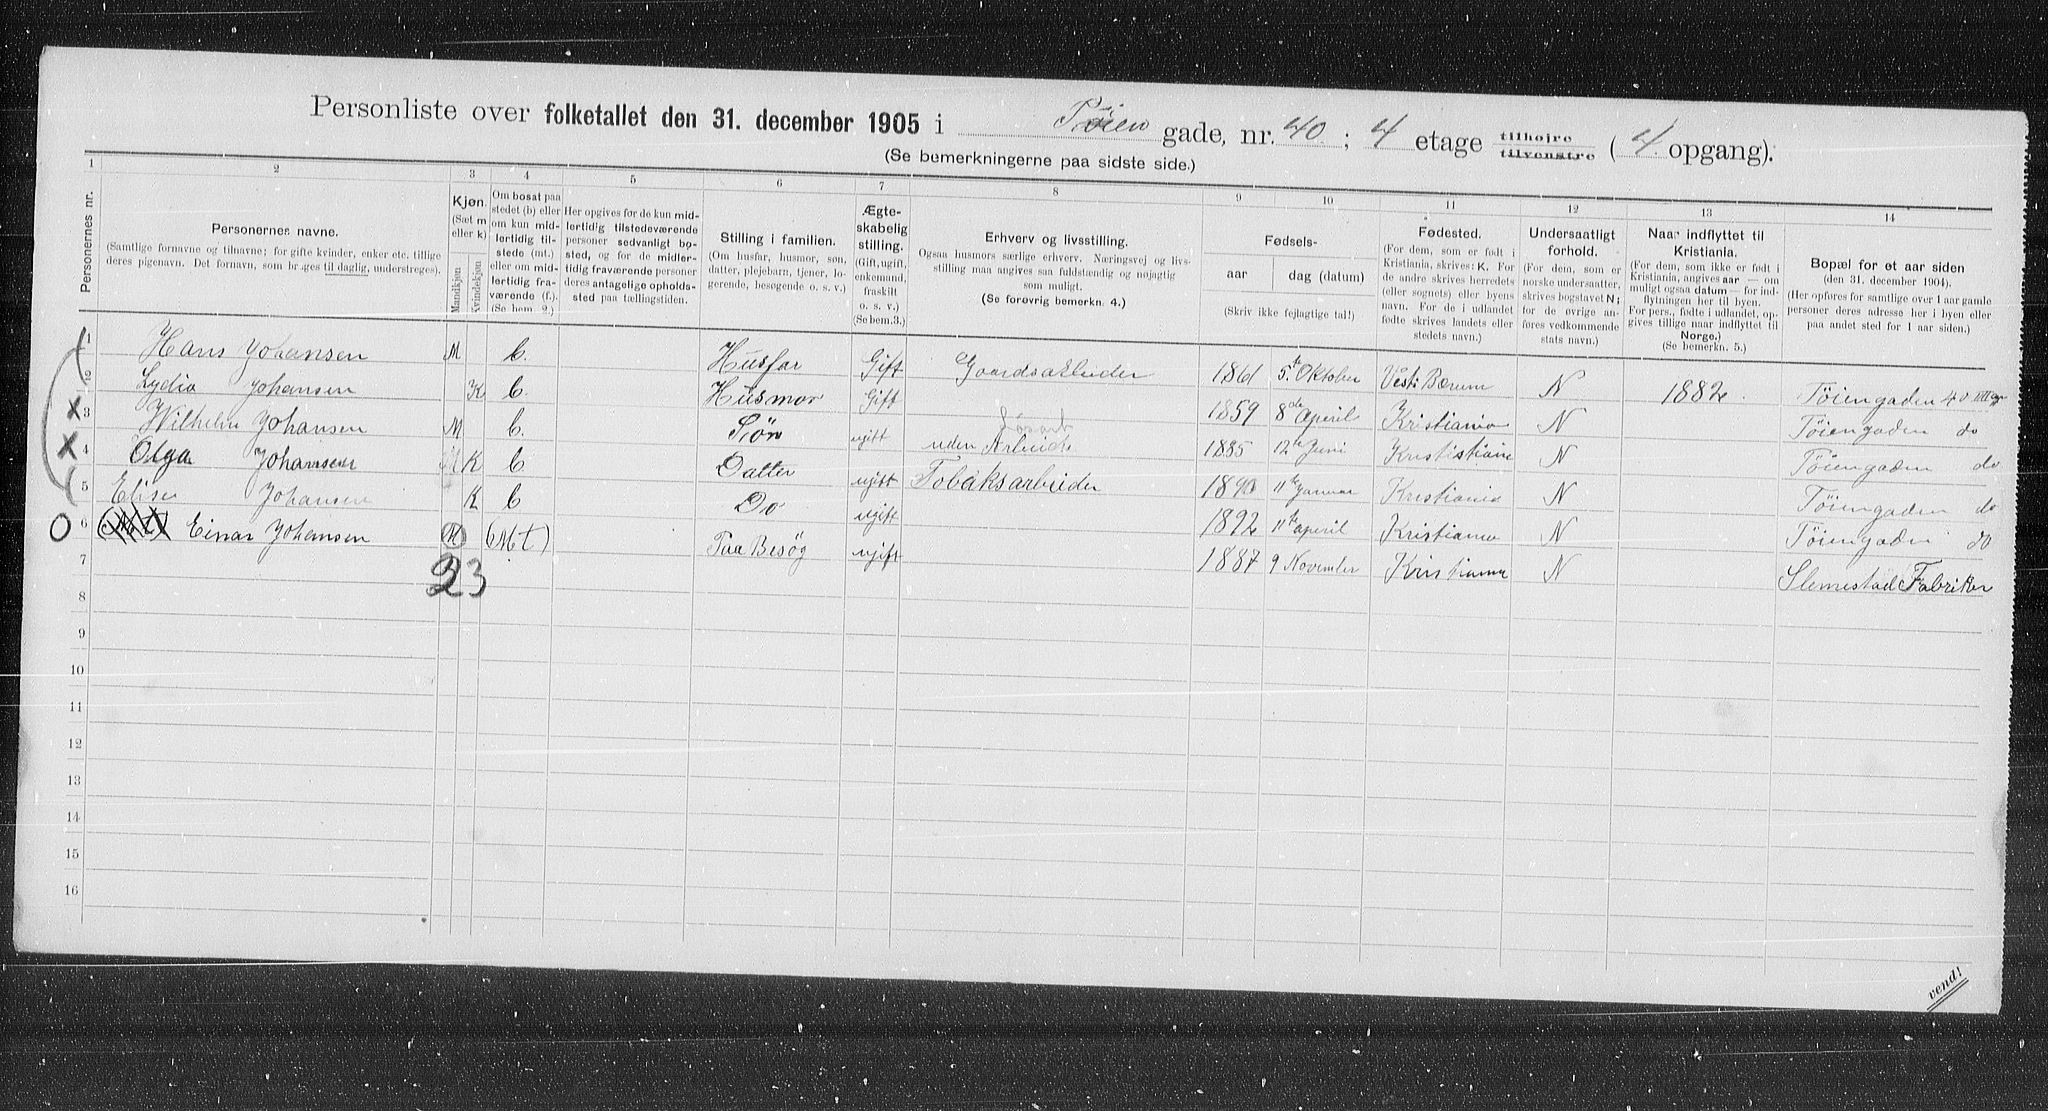 Personliste over folketallet den 31. december 1905 i Töien gade, nr. 40. ; 4 etage tilhøjre tilvenstre ( 4. opgang).
(Se bemerkningerne paa sidste side.)
1 2 3 4 5 6 7 8 9 10 11 12 13 14
Personernes nr.
Personernes navne.
(Samtlige fornavne og tilnavne; for gifte kvinder, enker etc. tillige
deres pigenavn. Det fornavn, som bruges til daglig, understreges).
Kjøn.
(Sæt m
eller k)
Mandkjøn
Kvindekjøn
Om bosat paa
stedet (b) eller
om kun mid-
lertidig til-
stede (mt.)
eller om mid-
lertidig fra-
værende (f.).
(Se bem. 2.)
Her opgives for de kun mid-
lertidig tilstedeværende
personer sedvanligt bo-
sted, og for de midler-
tidig fraværende personer
deres antagelige opholds-
sted paa tællingstiden.
Stilling i familien.
(Om husfar, husmor, søn,
datter, plejebarn, tjener, lo-
gerende, besøgende o. s. v.)
Ægte-
skabelig
stilling.
(Gift, ugift,
enkemand,
fraskilt
o. s. v.)
(Se bem. 3.)
Erhverv og livsstilling.
Ogsaa husmors særlige erhverv. Næringsvej og livs-
stilling maa angives saa fuldstændig og nøjagtig
som muligt.
(Se forøvrig bemerkn. 4.)
Fødsels-
aar dag (datum)
(Skriv ikke fejlagtige tal!)
Fødested.
(For dem, som er født i
Kristiania, skrives: K. For
de andre skrives herredets
(eller sognets) eller byens
navn. For de i udlandet
fødte skrives landets eller
stedets navn.)
Undersaatligt
forhold.
(For dem, som er
norske undersaatter,
skrives bogstavet N;
for de øvrige an-
føres vedkommende
stats navn.)
Naar indflyttet til
Kristiania.
(For dem, som ikke er født i
Kristiania, angives aar — om
muligt ogsaa datum — for ind-
flytningen her til byen.
For pers., fødte i udlandet, op-
gives tillige naar indflyttet til
Norge.)
(Se bemerkn. 5.)
Bopæl for et aar siden
(den 31. december 1904).
(Her opføres for samtlige over 1 aar gamle
personer deres adresse her i byen eller
paa andet sted for 1 aar siden.)
1 Hans Johansen M b. Husfar Gift Gaardsarbeider 1861 5te Oktober Vestre Bærum N 1882. Töiengaden 40
2 Lydia Johansen K b. Husmor Gift 1859 8de April Kristiania N Töiengaden do
3 Wilhelm Johansen M b. Sön ugift uden Arbeide 1885 12te Juni Kristiania N Töiengaden do
4 Olga Johansen K b Datter ugift Tobaksarbeider 1890 11te Januar Kristiania N Töiengaden do
5 Elise Johansen K b Do ugift 1892 11te April Kristiania N Töiengaden do
6 Einar Johansen M (Mt) Paa Besög ugift 1887 9 November Kristiania N Slemestad Fabriker
7
23
8
9
10
11
12
13
14
15
16
vend!